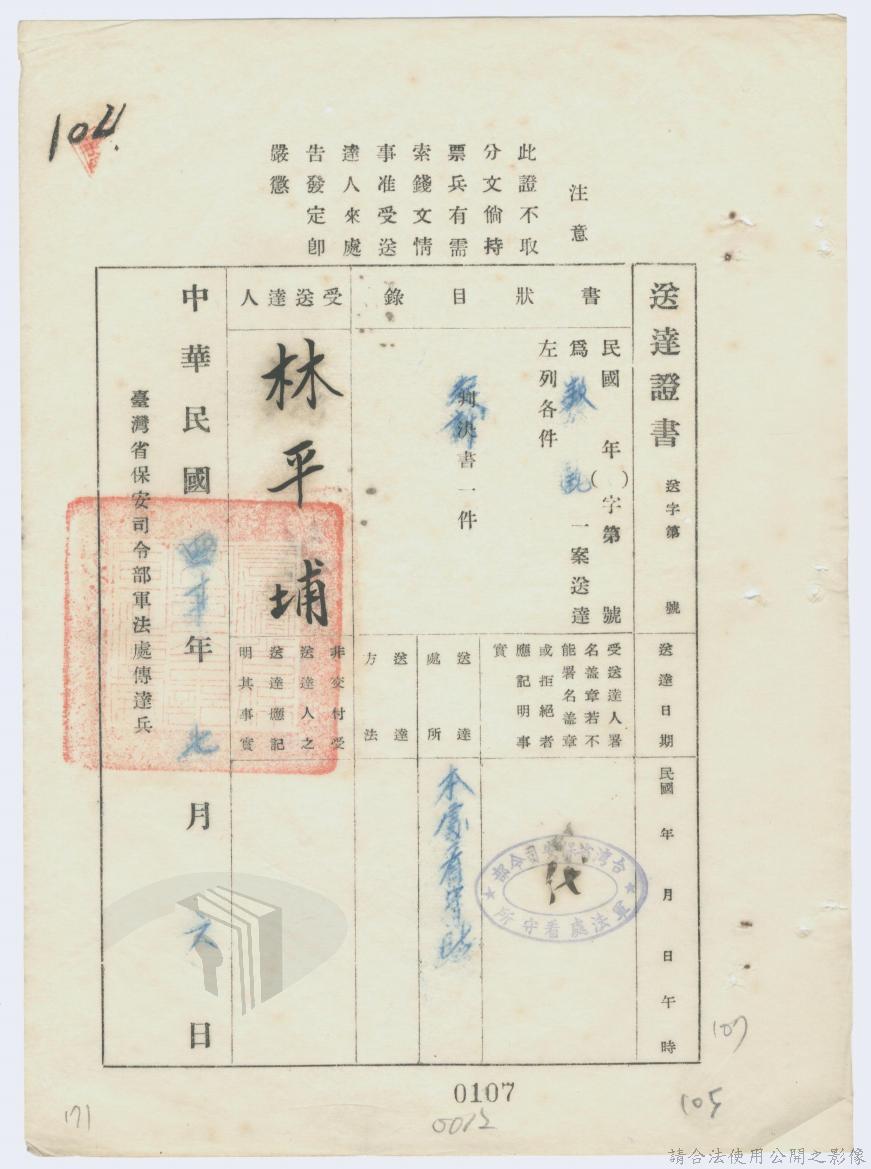 104
注意
此證不取
分文倘持
票兵有需
索錢文情
事准受送
達人來處
告發定卽
嚴懲
送達證書
送字第 號
書狀目錄
民國 年( )字第 號
爲叛亂一案送達
左列各件
判決書一件
受送達人
林平埔
送達日期
民國 年 月 日 午 時
受送達人署
名蓋章若不
能署名蓋章
或拒絕者
應記明事
實
台灣省保安司令部
軍法處看守所
代
送達處所
本處看守所
送達方法
非交付受
送達人之
送達應記
明其事實
中華民國四十年七月六日
臺灣省保安司令部軍法處傳達兵
0107
0012
107
105
171
請合法使用公開之影像